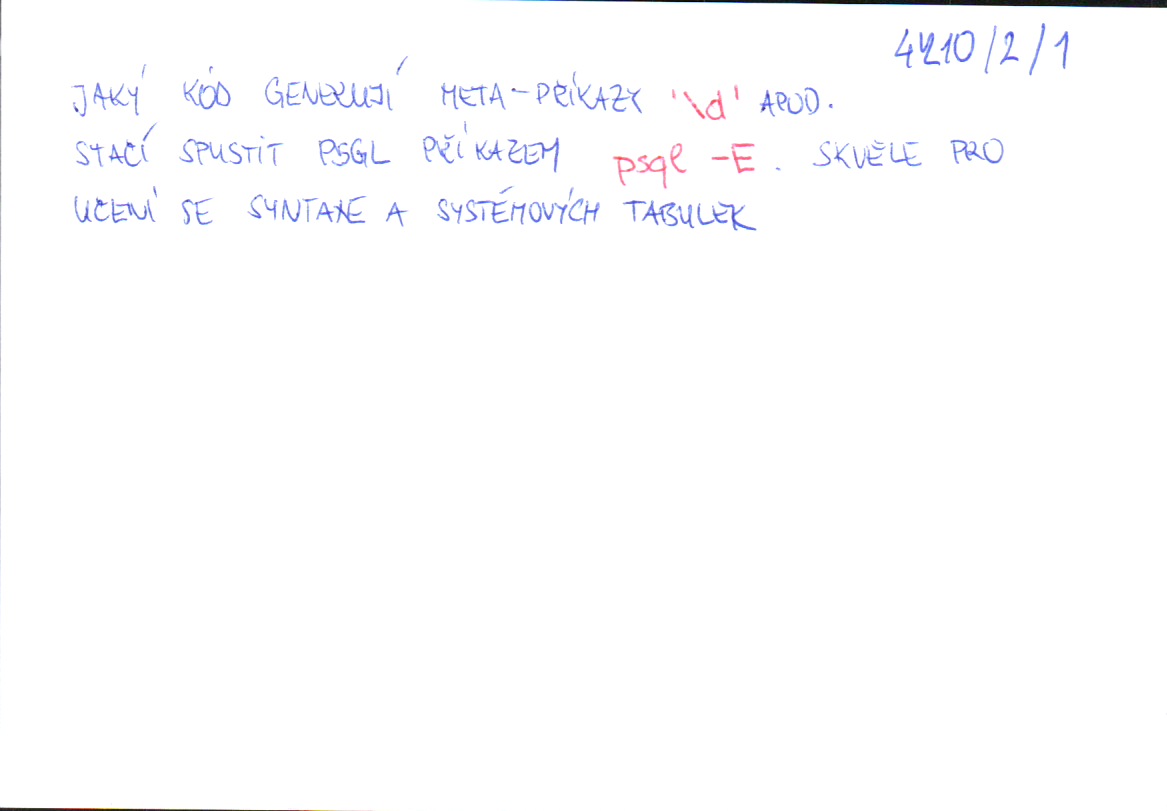 4210/2/1
JAKÝ KÓD GENERUJÍ META-PŘÍKAZY '\d' APOD.
STAČÍ SPUSTIT PSQL PŘÍKAZEM psql -E. SKVĚLE PRO
UČENÍ SE SYNTAXE A SYSTÉMOVÝCH TABULEK